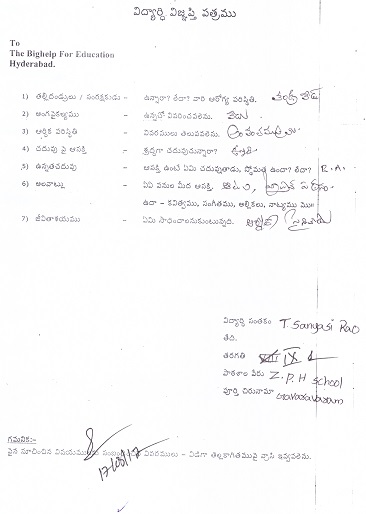 విద్యార్థి విజ్ఞప్తి పత్రము
To
The Bighelp For Education
Hyderabad.
1) తల్లిదండ్రులు / సంరక్షకుడు - ఉన్నారా? లేదా? వారి ఆరోగ్య పరిస్థితి.
2) అంగవైకల్యము - ఉన్నచో వివరించవలెను. లేదు
3) ఆర్థిక పరిస్థితి - వివరములు తెలుపవలెను.
4) చదువు పై ఆసక్తి - శ్రద్ధగా చదువుచున్నారా?
5) ఉన్నతచదువు - ఆసక్తి ఉంటే ఏమి చదువుతాడు, స్తోమత ఉందా? లేదా?
6) అలవాట్లు - ఏఏ పనుల మీద ఆసక్తి.
ఉదా - కవిత్వము, సంగీతము, అల్లికలు, నాట్యము మొ॥
7) జీవితాశయము - ఏమి సాధించాలనుకుంటున్నది.
విద్యార్థి సంతకం T. Sanyasi Rao
తేది.
తరగతి IX
పాఠశాల పేరు Z.P.H School
పూర్తి చిరునామా
గమనిక:-
పైన సూచించిన విషయములకు వివరములు - విడిగా తెల్లకాగితముపై వ్రాసి ఇవ్వవలెను.